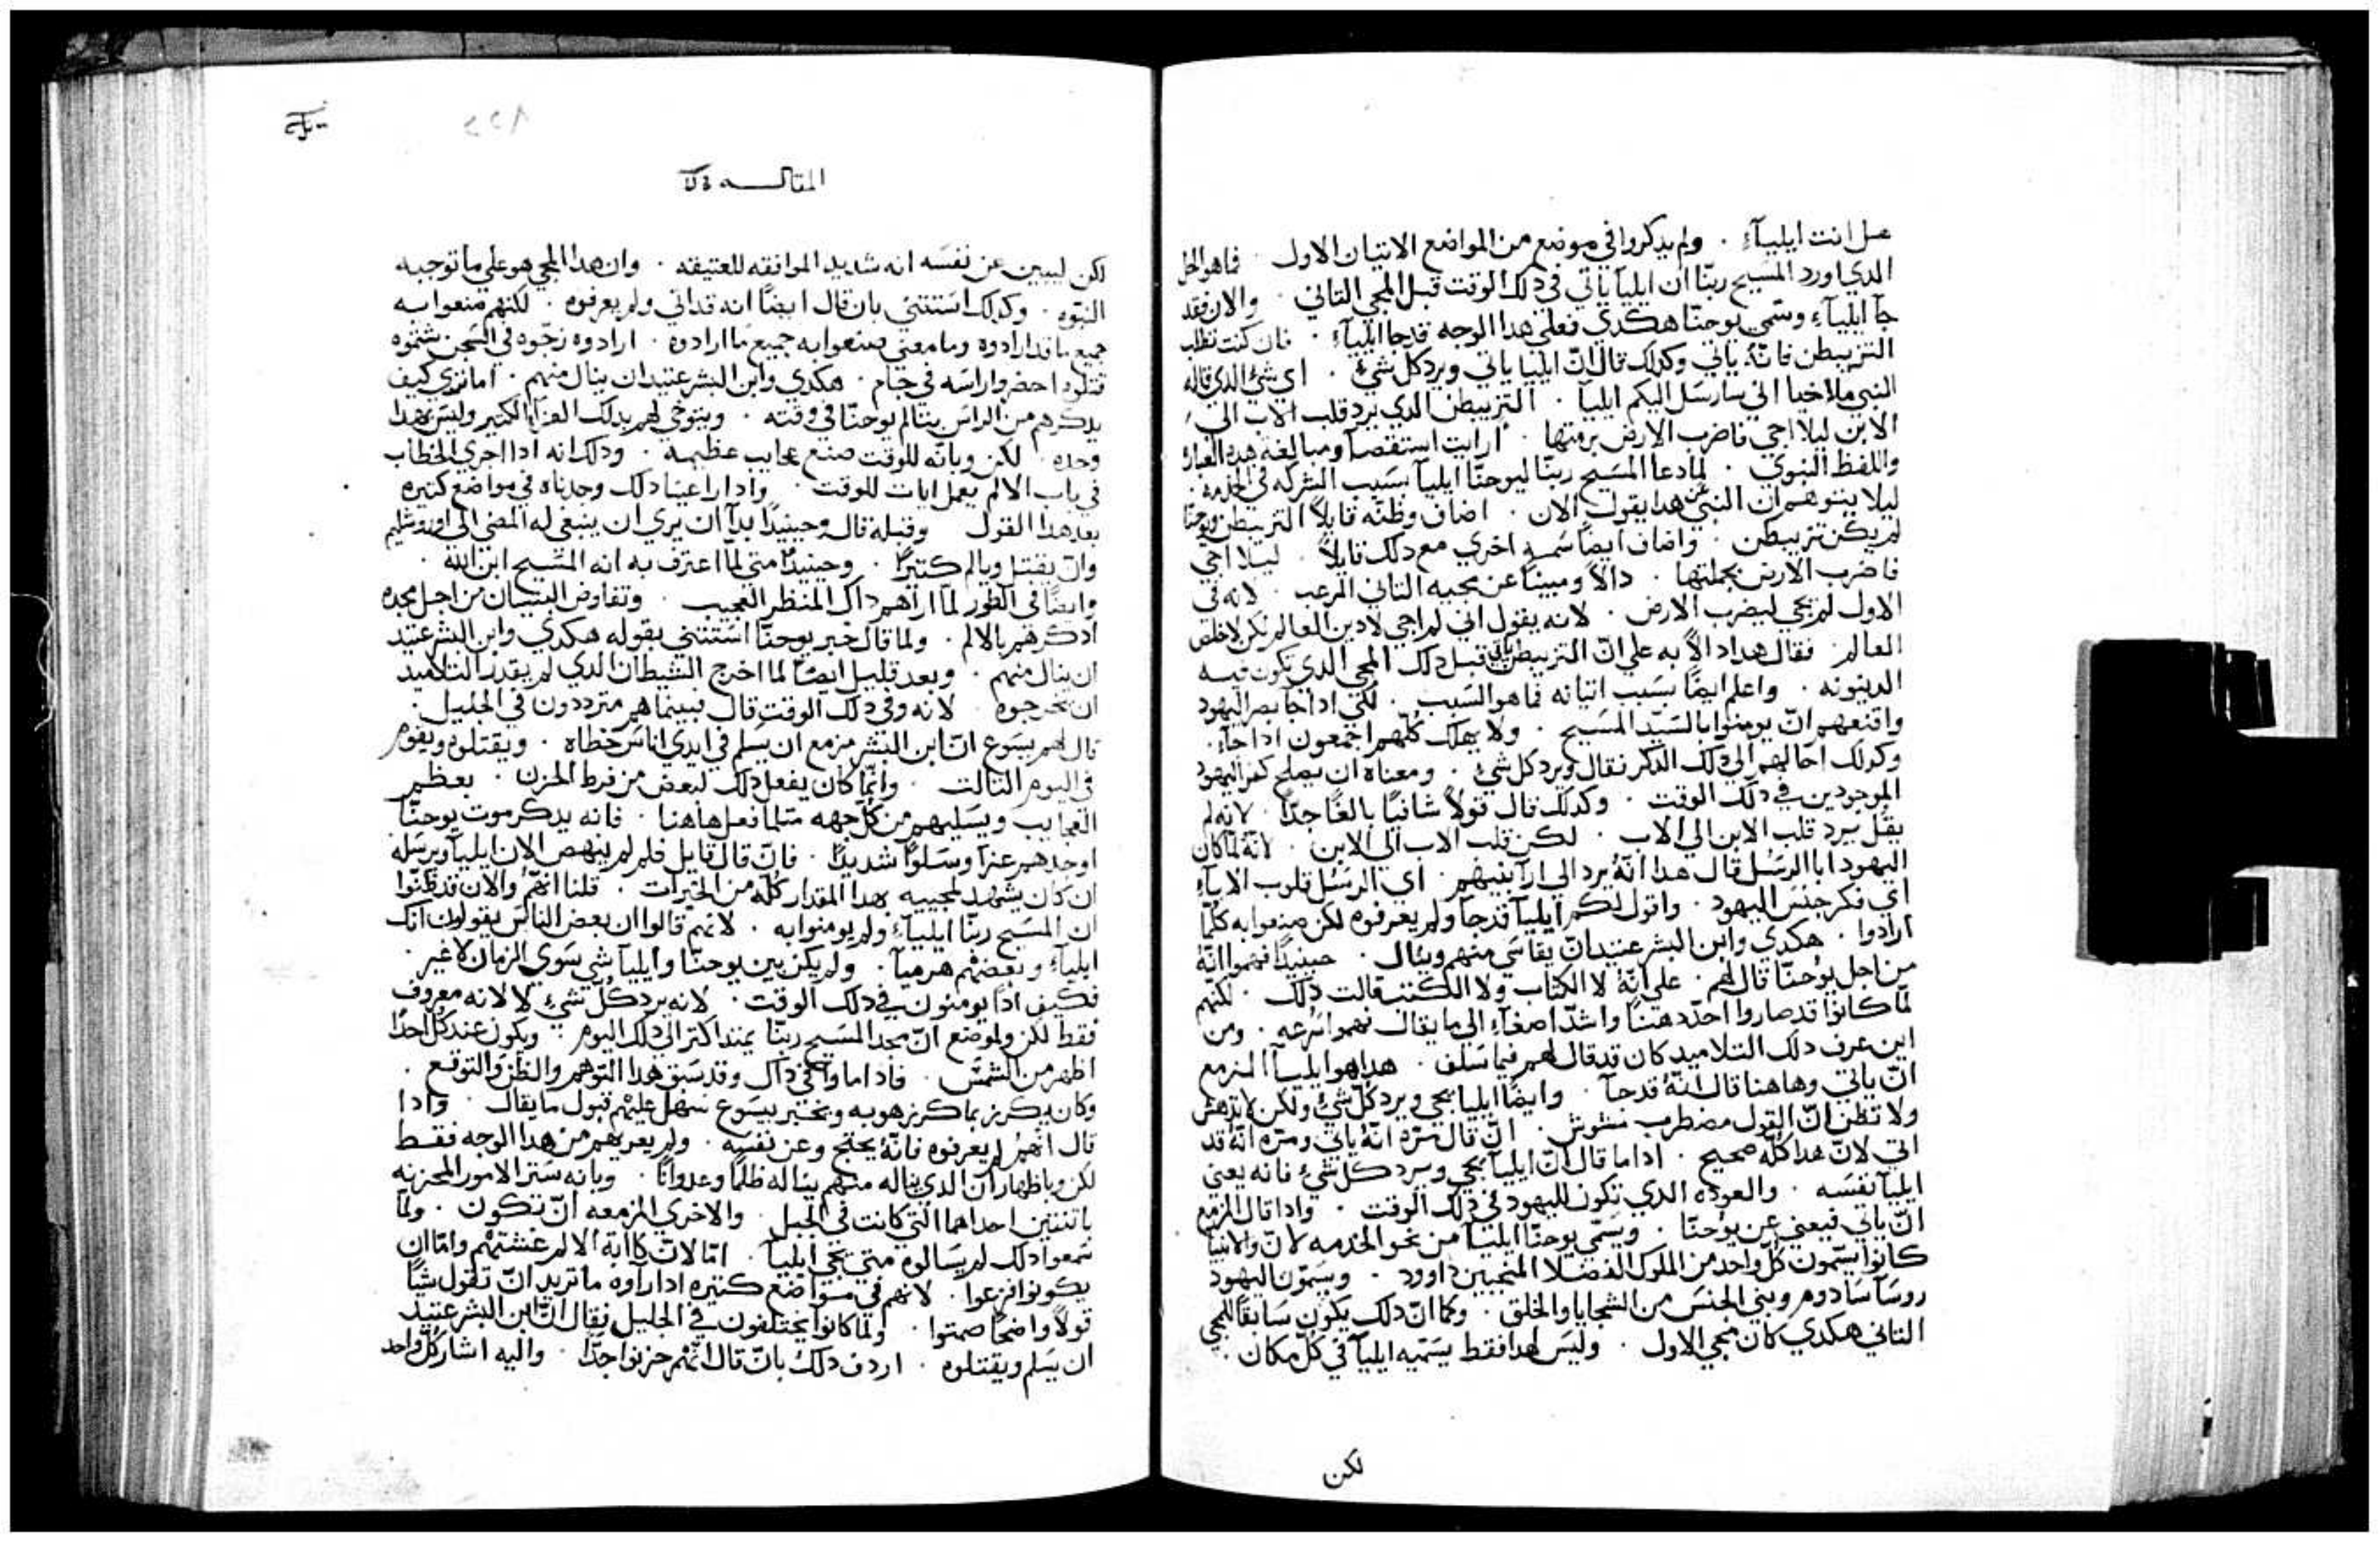 هل انت ايلياء . ولم يدكروا في موضع من المواضع الاتيان الاول . فما هو الحل
الدي اورد المسيح ربنا ان ايليا ياتي في دلك الوقت قبل المجي التاني . والان فقد
جا ايلياء وسمي يوحنا هكدي فعلي هدا الوجه قد جا ايلياء . فان كنت تطلب
التزبيطن فانه ياتي وكدلك قال ان ايليا ياتي ويرد كل شيء . اي شي الدي قاله
النبي ملاخيا اني سارسل اليكم ايليا . التزبيطن الدي يرد قلب الاب الي
الابن ليلا اجي فاضرب الارض برمتها . ارايت استقصا ومبالغة هده العباره
واللفظ النبوي . لما دعا المسيح ربنا ليوحنا ايليا بسبب الشركه في الخدمه .
ليلا يتوهم ان النبي عن هدا يقول الان . اضاف وظنه قايلا التزبيطن ويوحنا
لم يكن تزبيطن . واضاف ايضا سمة اخري مع دلك قايلا . ليلا اجي
فاضرب الارض بجملتها . دالا ومبينا عن مجيه التاني المرعب . لانه في
الاول لم يجي ليضرب الارض . لانه يقول اني لم اجي لادين العالم لكن لاخلص
العالم . فقال هدا دالا به علي ان التزبيطن ياتي قبل دلك المجي الدي تكون فيه
الدينونه . واعلم ايضا بسبب اتيانه فما هو السبب . لكي ادا جا بصر اليهود
واقنعهم ان يومنوا بالسيد المسيح . ولا يهلك كلهم اجمعون ادا جاء .
وكدلك احالهم الي دلك الدكر فقال ويرد كل شي . ومعناه ان يصلح كفر اليهود
الموجودين في دلك الوقت . وكدلك قال قولا شافيا بالغا جدا . لانه لم
يقل يرد قلب الابن الي الاب . لكن قلب الاب الي الابن . لانه لما كان
اليهود ابا الرسل قال هدا انه يرد الي ارا بنيهم . اي الرسل قلوب الاباء
اي فكر جنس اليهود . واقول لكم ايليا قد جا ولم يعرفوه لكن صنعوا به كلما
ارادوا . هكدي وابن البشر عتيد ان يقاسي منهم وينال . حينيدا فهموا انه
من اجل يوحنا قال لهم . علي انه لا الكتاب ولا الكتبه قالت دلك . لكنهم
لما كانوا قد صاروا احد دهنا واشد اصغاء الي ما يقال فهموا بسرعه . ومن
اين عرف دلك التلاميد كان قد قال لهم فيما سلف . هدا هو ايليا المزمع
ان ياتي وهاهنا قال انه قد جا . وايضا ايليا يجي ويرد كل شي ولكن لا تدهش
ولا تظن ان القول مضطرب مشوش . ان قال مره انه ياتي ومره انه قد
اتي لان هدا كله صحيح . ادا ما قال ان ايليا يجي ويرد كل شي فانه يعني
ايليا نفسه . والعوده الدي تكون لليهود في دلك الوقت . وادا قال المزمع
ان ياتي فيعني عن يوحنا . ويسمي يوحنا ايليا من نحو الخدمه لان والانبيا
كانوا يسمون كل واحد من الملوك الفضلا المنجبين داوود . ويسمون اليهود
روسا سادوم وبني الحبش من السجايا والخلق . وكما ان دلك يكون سابقا للمجي
التاني هكدي كان مجي الاول . وليس لهدا فقط يسميه ايليا في كل مكان .
لكن
المقالـــه
لكن ليبين عن نفسه انه شديد الموافقه للعتيقه . وان هدا المجي هو علي ما توجبه
النبوه . وكدلك استتني بان قال ايضا انه قد اتي ولم يعرفوه . لكنهم صنعوا به
جميع ما قد ارادوه وما معني صنعوا به جميع ما ارادوه . ارادوه زجوه في السجن شتموه
قتلوه احضروا راسه في جام . هكدي وابن البشر عتيد ان ينال منهم . اما تري كيف
يدكرهم من الراس بتالم يوحنا في وقته . ويتوخي لهم بدلك العزاء الكتير وليس بهدا
وحده . لكن وبانه للوقت صنع عجايب عظيمه . ودلك انه ادا اجري الخطاب
في باب الالم يعمل ايات للوقت . وادا راعينا دلك وجدناه في مواضع كتيره
بعد هدا القول وقبله قال وحينيدا بدا ان يري ان ينبغي له المضي الي اوروشليم
وان يقتل ويالم كتيرا . وحينيدا متي لما اعترف به انه المسيح ابن الله .
وايضا في الطور لما اراهم داك المنظر العجيب . وتفاوض النبيان من اجل مجده
ادكرهم بالالم . ولما قال خبر يوحنا استتني بقوله هكدي وابن البشر عتيد
ان ينال منهم . وبعد قليل ايضا لما اخرج الشيطان الدي لم يقدر التلاميد
ان يخرجوه . لانه وفي دلك الوقت قال فبينما هم مترددون في الجليل .
قال لهم يسوع ان ابن البشر مزمع ان يسلم في ايدي اناس خطاه . ويقتلوه ويقوم
في اليوم التالت . وانما كان يفعل دلك لبعض من فرط الحزن . بعظم
العجايب ويسليهم من كل جهه متلما فعل هاهنا . فانه بدكر موت يوحنا
اوجدهم عزا وسلوا شديدا . فان قال قايل فلم لم ينهض الان ايليا ويرسله
ان كان يشهد لمجييه هدا المقدار كله من الخيرات . قلنا انهم والان قد ظنوا
ان المسيح ربنا ايلياء ولم يومنوا به . لانهم قالوا ان بعض الناس يقولون انك
ايلياء وبعضهم هرميا . ولم يكن بين يوحنا وايليا شي سوي الزمان لا غير .
فكيف ادا يومنون في دلك الوقت . لانه يرد كل شي لا لانه معروف
فقط لكن ولموضع ان مجد المسيح ربنا يمتد اكتر الي دلك اليوم . ويكون عند كل احدا
اظهر من الشمس . فادا ما وافي داك وقد سبق هدا التوهم والظن والتوقع .
وكان يكرز بما كرز هو به ويخبر بيسوع سهل عليهم قبول ما يقال . وادا
قال انهم لم يعرفوه فانه يحتج وعن نفسه . ولم يعريهم من هدا الوجه فقط
لكن وباظهار ان الدي يناله منهم يناله ظلما وعدوانا . وبانه ستر الامور المحزنه
باتنتين احداهما التي كانت في الجبل . والاخري المزمعه ان تكون . ولما
سمعوا دلك لم يسالوه متي يجي ايليا . اما لان كابة الالم غشتهم واما ان
يكونوا فزعوا . لانهم في مواضع كتيره ادا راوه ما تريد ان تقول شيا
قولا واضحا صمتوا . ولما كانوا يختلفون في الجليل فقال ان ابن البشر عتيد
ان يسلم ويقتلوه . اردف دلك بان قال انهم حزنوا جدا . واليه اشار كل واحد